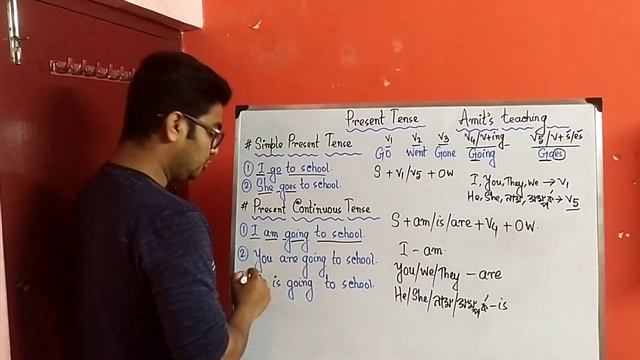 Present Tense Amit's teaching
# Simple Present Tense V1 V2 V3 V4/V+ing V5/V+s/es
GO Went Gone Going Goes
① I go to school. S + V1/V5 + OW
② She goes to school. I, You, They, We → V1
He, She, নাম, → V5
# Present Continuous Tense
① I am going to school. S + am/is/are + V4 + OW.
② You are going to school. I - am.
You/We/They - are
is going to school. He/She/নাম/ - is